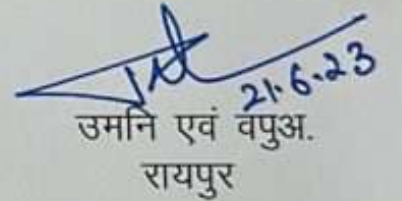 21.6.23
उमनि एवं वपुअ.
रायपुर